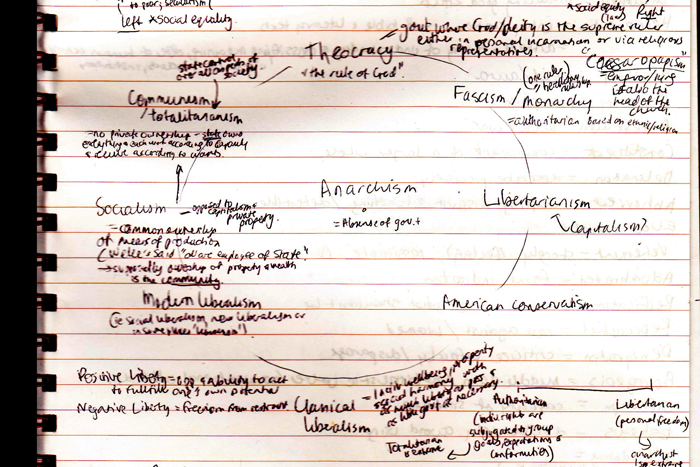 to poor; secularism)
left * social equality
* social equity
(law)
Right
→ govt where God/deity is the supreme ruler
either in personal incarnation or via religious
representatives.
Theocracy
"the rule of God".
state controls
over all aspects of
society
Caesaropapism
= emperor/king
is also the
head of the
church.
Communism
/totalitarianism
= no private ownership - state owns
everything & each work according to capacity
& receive according to wants.
(one ruler,
hereditary
Fascism / monarchy
= authoritarian based on ethnic/religion
Anarchism
= Absence of gov.t
Libertarianism
Capitalism?
Socialism
- opposed to
capitalism &
private
property.
= common ownership
of means of production
said "all are employees of State."
→ supposedly ownership of property & wealth
is the community.
Modern liberalism
(ie social liberalism, new liberalism or
in some places 'liberalism')
American conservatism
Positive Liberty = opp & ability to act
to fulfill one's own potential
Negative Liberty = freedom from restraint.
Classical
liberalism
= wellbeing, prosperity
& social harmony with
as much liberty as poss &
as little govt as necessary.
Authoritarian
(indiv. right are
subjugated to group
goals, expectations &
conformities)
Totalitarian
is extreme
Libertarian
(personal freedom)
anarchist
is extreme